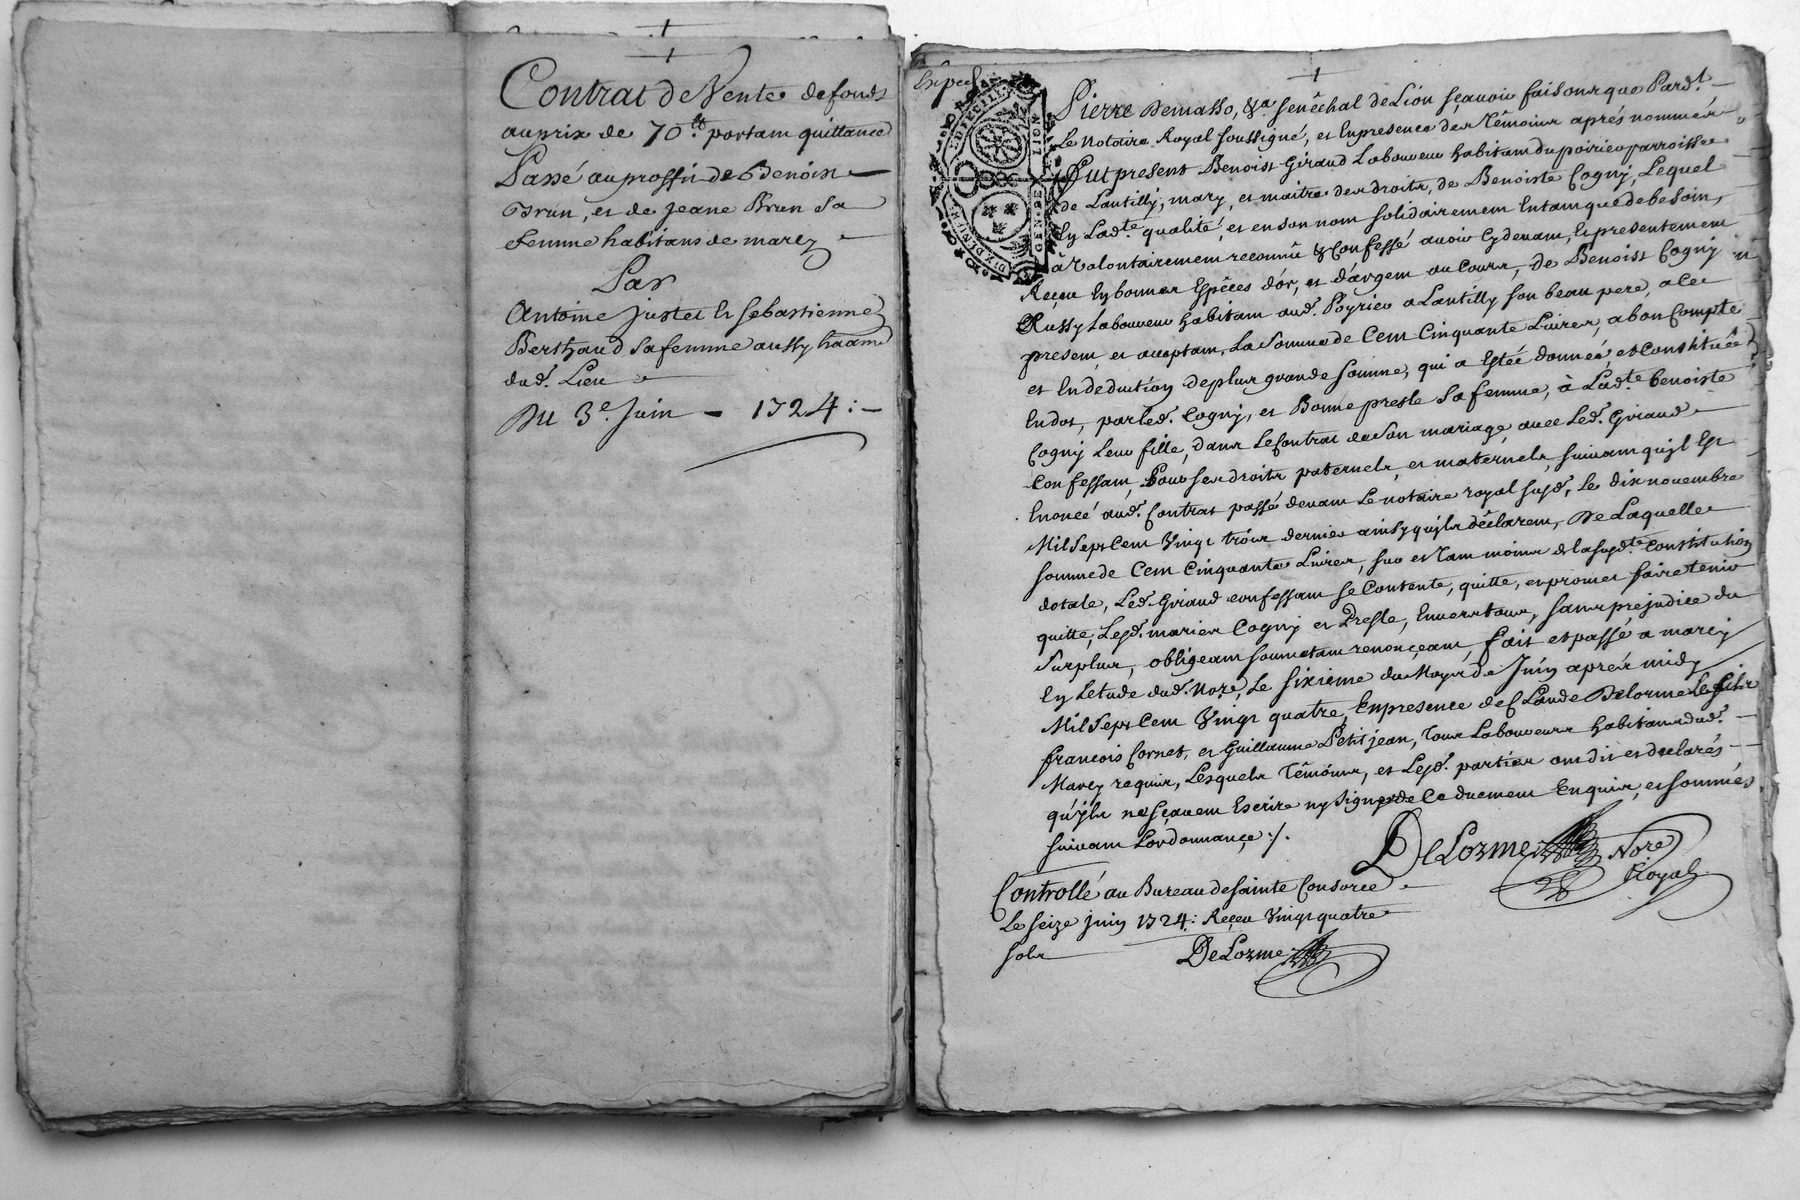 Contrat de Vente de fonds
au prix de 70 ₶ portant quittance
Passé au proffit de Benoist
Brun, et de Jeane Brun sa
femme habitans de marcy
Par
Antoine Justet et Sebastienne
Berthaud sa femme aussy
dud. Lieu
Du 3e. Juin - 1724 : -
Expedié
Pierre Demasso, &a. senéchal de Lion sçavoir faisons que Pardt.
Le Notaire Royal soussigné, et en presence des témoins aprés nommés
Fut present Benoist Giraud Laboureur habitant du poirieu parroisse
de Lantilly, mary, et maitre des droits, de Benoiste Cogny, Lequel
En Ladte. qualité, et en son nom solidairement En tant que de besoin,
à Volontairement reconnû & Confessé avoir Cy devant, et presentement
Reçeu En bonnes Espéces d'or, et d'argent au Cours, de Benoist Cogny
Aussy Laboureur habitant aud. Poyrieu a Lantilly son beau pere, a ce
present, et acceptant, La somme de Cent Cinquante Livres, a bon Compte
et En deduction de plus grande somme, qui a Estée donnée et Constituée
En dot, par led. Cogny, et Bonne presle sa femme, à Ladte. Benoiste
Cogny Leur fille, dans Le Contrat de son mariage avec Led. Giraud
Confessant, Pour ses droits paternels, et maternels, suivant qu'jl Est
Enoncé aud. Contrat passé devant Le notaire royal susd., Le dix novembre
Mil Sept Cent Vingt trois dernier ainsy qu'jls déclarent, De Laquelle
somme de Cent Cinquante Livres, sur et tant moins de la susdte. Constitution
dotale, Led. Giraud confessant se Contente, quitte, et promet faire tenir
quitte, Lesd. mariés Cogny et Presle, Envers tous, sans prejudice du
surplus, obligeant soumettant renonçeant, fait et passé a marcy
En Letude dud. Nore, Le sixieme du Moys de Juin aprés midy
Mil Sept Cent Vingt quatre, En presence de Claude Delorme Le fils
francois Cornet, et Guillaume Petitjean, tous Laboureurs habitans dud.
Marcy requis, Lesquels Témoins, et Lesd. parties ont dit et declarés
qu'jls ne sçavent Escrire ny signer de Ce duement Enquis, et sommés
suivant Lordonnance :/.
DeLorme Nore
Royal
Controllé au Bureau de Sainte Consorce
Le seize juin 1724 : Reçeu Vingt quatre
sols
DeLorme